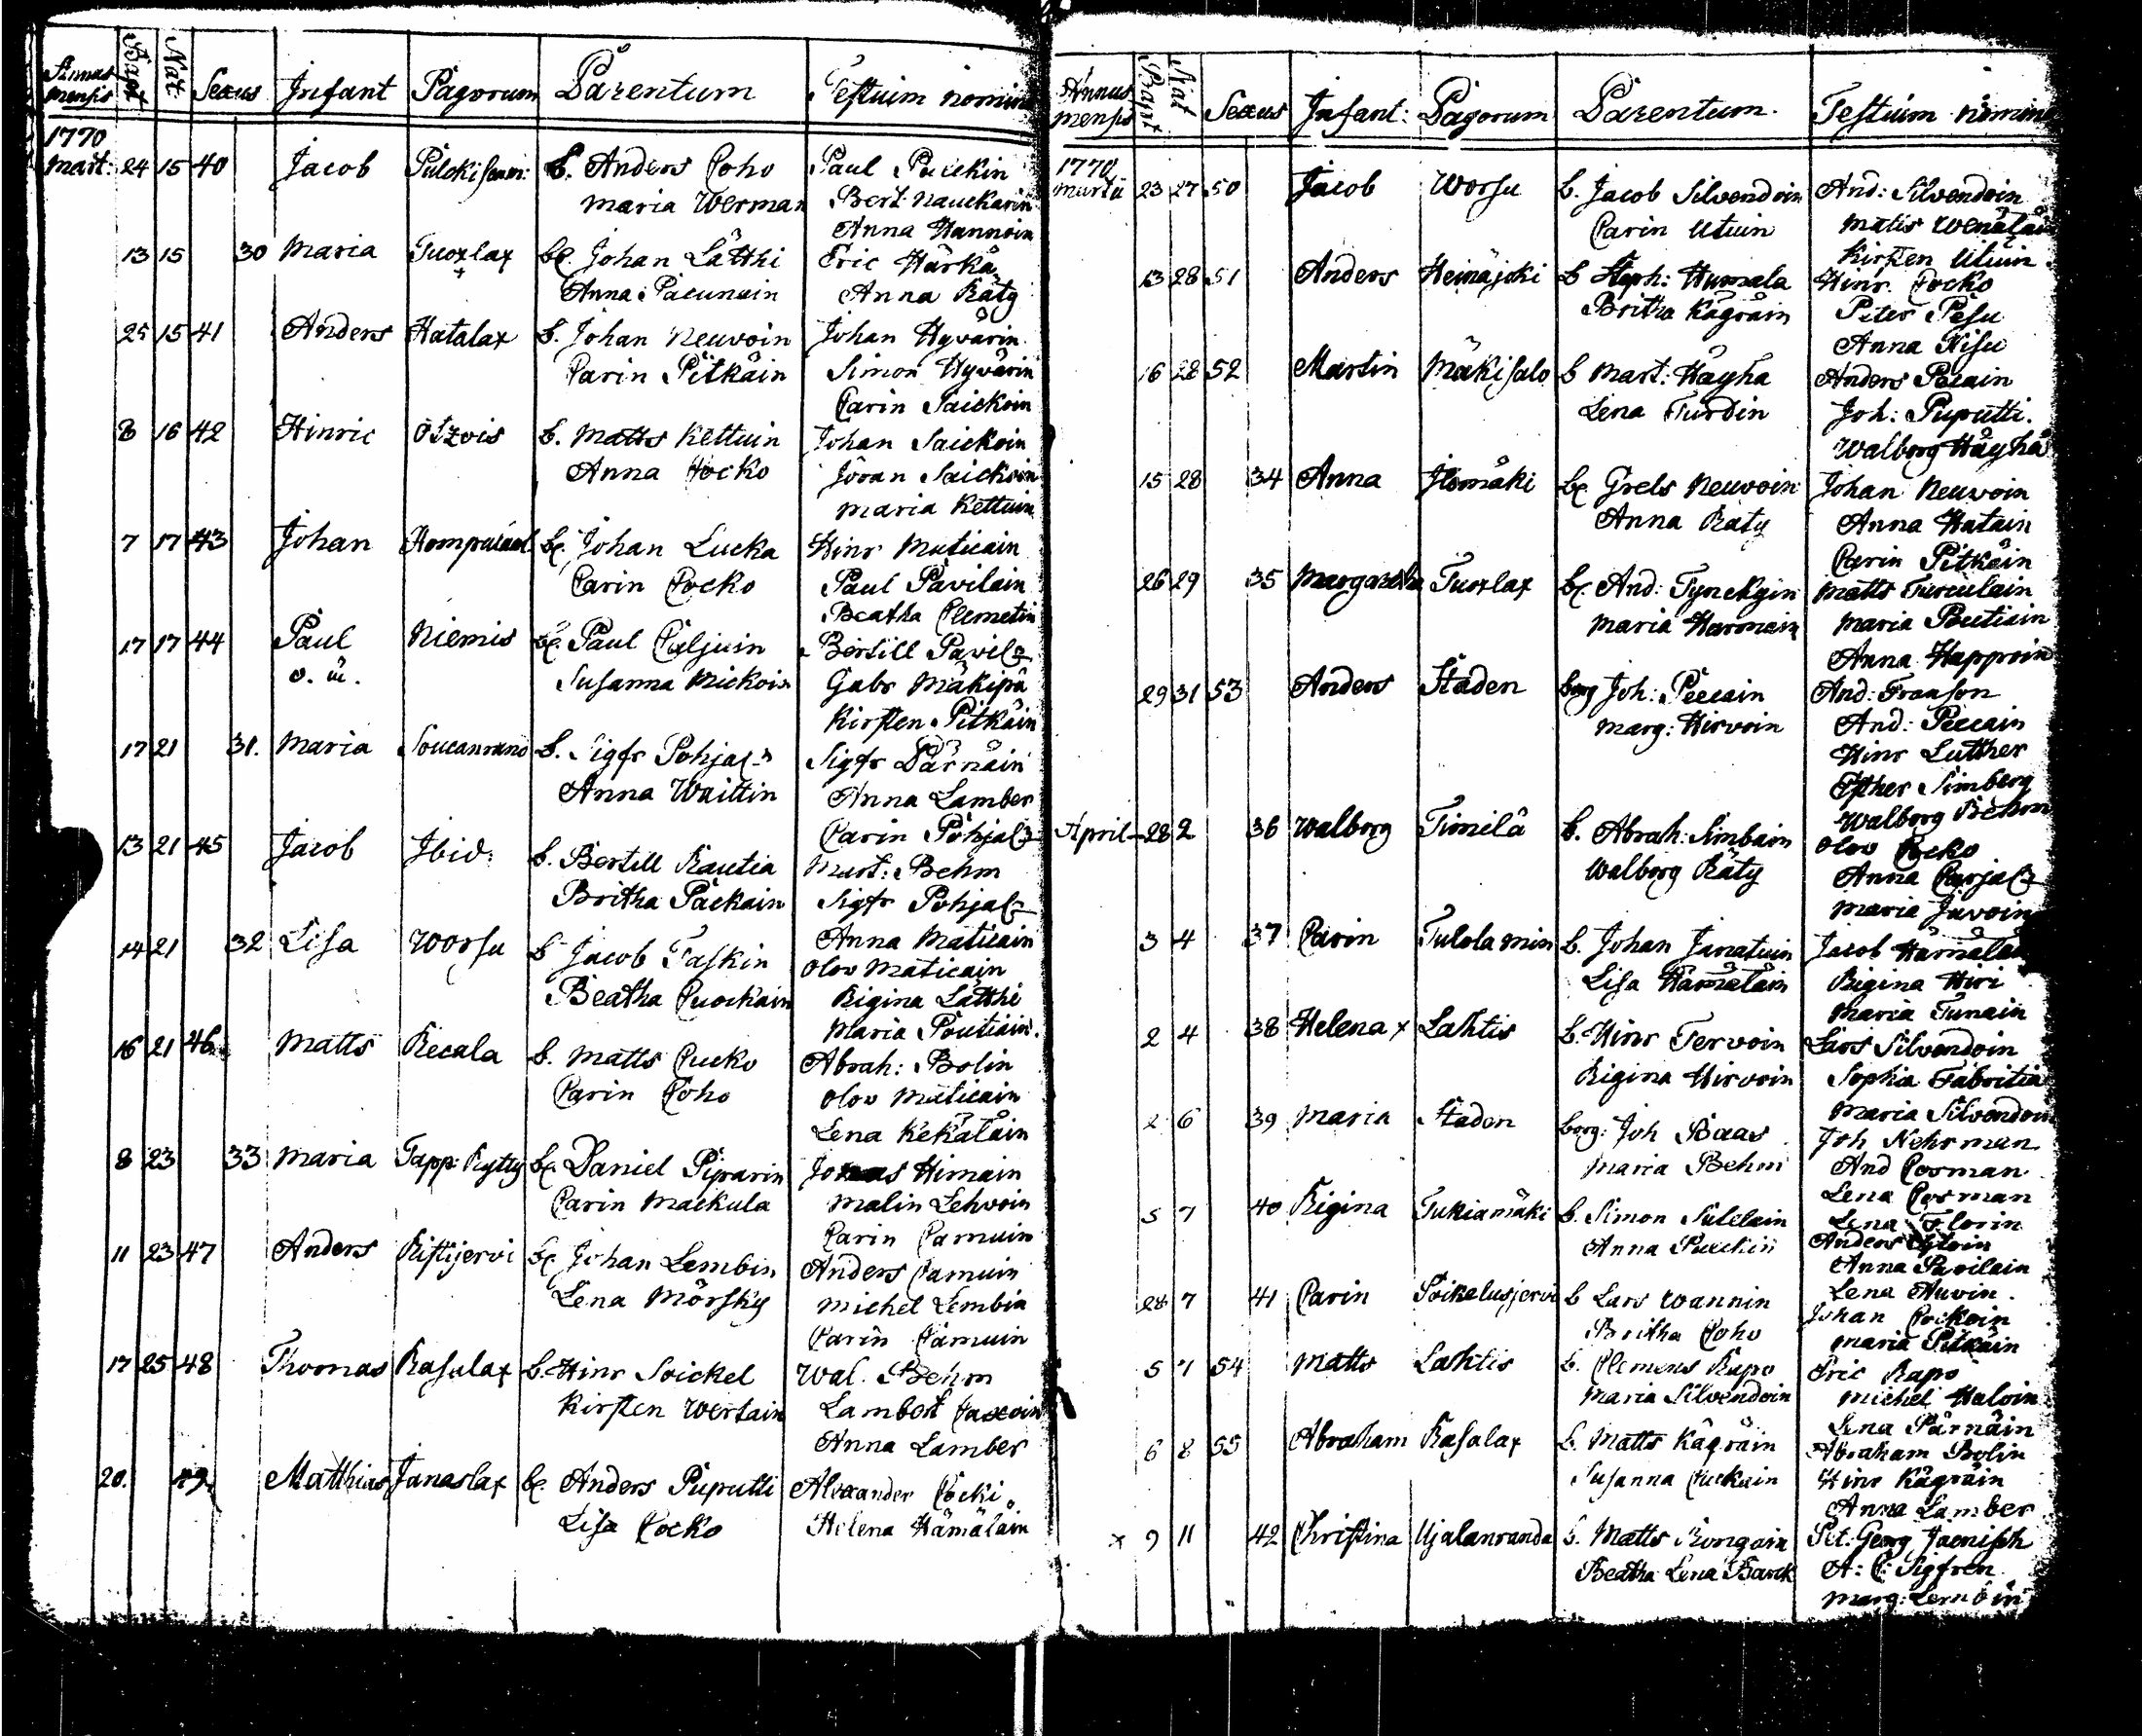 Annus mensis Bapt. Nat. Sexus Infant Pagorum Parentum Testium nomina
1770
Mart: 24 15 40 Jacob Pulckisaari: b. Anders Coho Paul Puckin
Maria Werman Bert. Nauckarin
Anna Hannoin
13 15 30 Maria Tuoxlax bć Johan Lätthi Eric Härkä
Anna Pacunain Anna Räty
25 15 41 Anders Hatalax b. Johan Neuvoin Johan Hyvärin
Carin Pitkäin Simon Hyvärin
Carin Saickoin
8 16 42 Hinric b. Matts Kettuin Johan Saickoin
Anna Hocko Jöran Saickoin
Maria Kettuin
7 17 43 Johan bć Johan Lucka Hinr Muticain
Carin Cocko Paul Pavilain
Beatha Clemetin
17 17 44 Paul Niemis bć Paul Culjuin Bertill Pavil
o. ä. Susanna Mickoin Gabr Mäkipä
Kirsten Pitkäin
17 21 31. Maria Soucanrand b. Sigfr Pohjal Sigfr Pärnäin
Anna Waittin Anna Lamber
Carin Pohjal
13 21 45 Jacob Ibid: b. Bertill Rautia Mart: Behm
Britha Päckain Sigfr Pohjal
Anna Maticain
14 21 32 Lisa Worsu b Jacob Taskin Olov Maticain
Beatha Cuockain Rigina Lätthi
Maria Poutiain
16 21 46 Matts Recala b. Matts Cucko Abrah: Bolin
Carin Coho Olov Maticain
Lena Kekäläin
8 23 33 Maria Tapp: Rytty bć Daniel Piparin Jonas Himain
Carin Mackula Malin Lehvoin
Carin Camuin
11 23 47 Anders Ristijervi bć Johan Lembin Anders Camuin
Lena Mörsky Michel Lembin
Carin Camuin
17 25 48 Thomas Rasalax b. Hinr Soickel Wal. Behm
Kirsten Wertain Lambert
Anna Lamber
20. 49 Matthias Janaslax bć Anders Puputti Alexander Cocki
Lisa Cocko Helena Hämäläin
Annus mensis Bapt Nat Sexus Infant: Pagorum Parentum. Testium nomina
1770
Martii 23 27 50 Jacob Worsu b. Jacob Silvendoin And: Silvendoin
Carin Utuin Matts Wenäläin
Kirsten Utuin
13 28 51 Anders Heinäjoki b Steph: Humala Hinr. Cocko
Britha Kägräin Peter Pesu
Anna Hisu
16 28 52 Martin Mäkisalo b Mart: Häyhä Anders Pecain
Lena Turdin Joh: Puputti.
Walborg Häyhä
15 28 34 Anna Ilomäki bć Grels Neuvoin Johan Neuvoin
Anna Räty Anna Hatain
Carin Pitkäin
26 29 35 Margaretha Tuoxlax bć And: Tynckyin Matts Turculain
Maria Harmain Maria Poutiain
Anna Happoin
29 31 53 Anders Staden borg Joh: Peccain And: Franson
Marg: Hirvoin And: Peccain
Hinr Luther
Esther Simberg
Walborg Behm
April 28 2 36 Walborg Timilä b. Abrah: Simbain Olov Cocko
Walborg Räty Anna Carjal
Maria Juvoin
3 4 37 Carin Tulolamin b. Johan Janatuin Jacob Hämäläin
Lisa Hämäläin Rigina Hiri
Maria Tunain
2 4 38 Helena x Lahtis b. Hinr Tervoin Lars Silvendoin
Rigina Hirvoin Sophia Fabritia
Maria Silvendoin
2 6 39 Maria Staden borg: Joh Baas Joh Nehrman
Maria Behm And Cosman
Lena Cosman
Lena Florin
5 7 40 Rigina Tukiamäki b. Simon Sulelain Anders
Anna Puckin Anna Pavilain
Lena Auvin.
28 7 41 Carin Soikelusjervi b Lars Wannin Johan Cockoin
Britha Coho Maria Pitkäin
5 7 54 Matts Lahtis b. Clemens Rapo Eric Rapo
Maria Silvendoin Michel Haloin
Lena Pärnäin
6 8 55 Abraham Rasalax b. Matts Kägräin Abraham Bolin
Susanna Cuckain Hinr Kägräin
Anna Lamber
x 9 11 42 Christina Ujalanranda b. Matts Rongain Pet: Georg Jaenisch
Beatha Lena Barck A: C: Sigfren
Marg: Lemboin